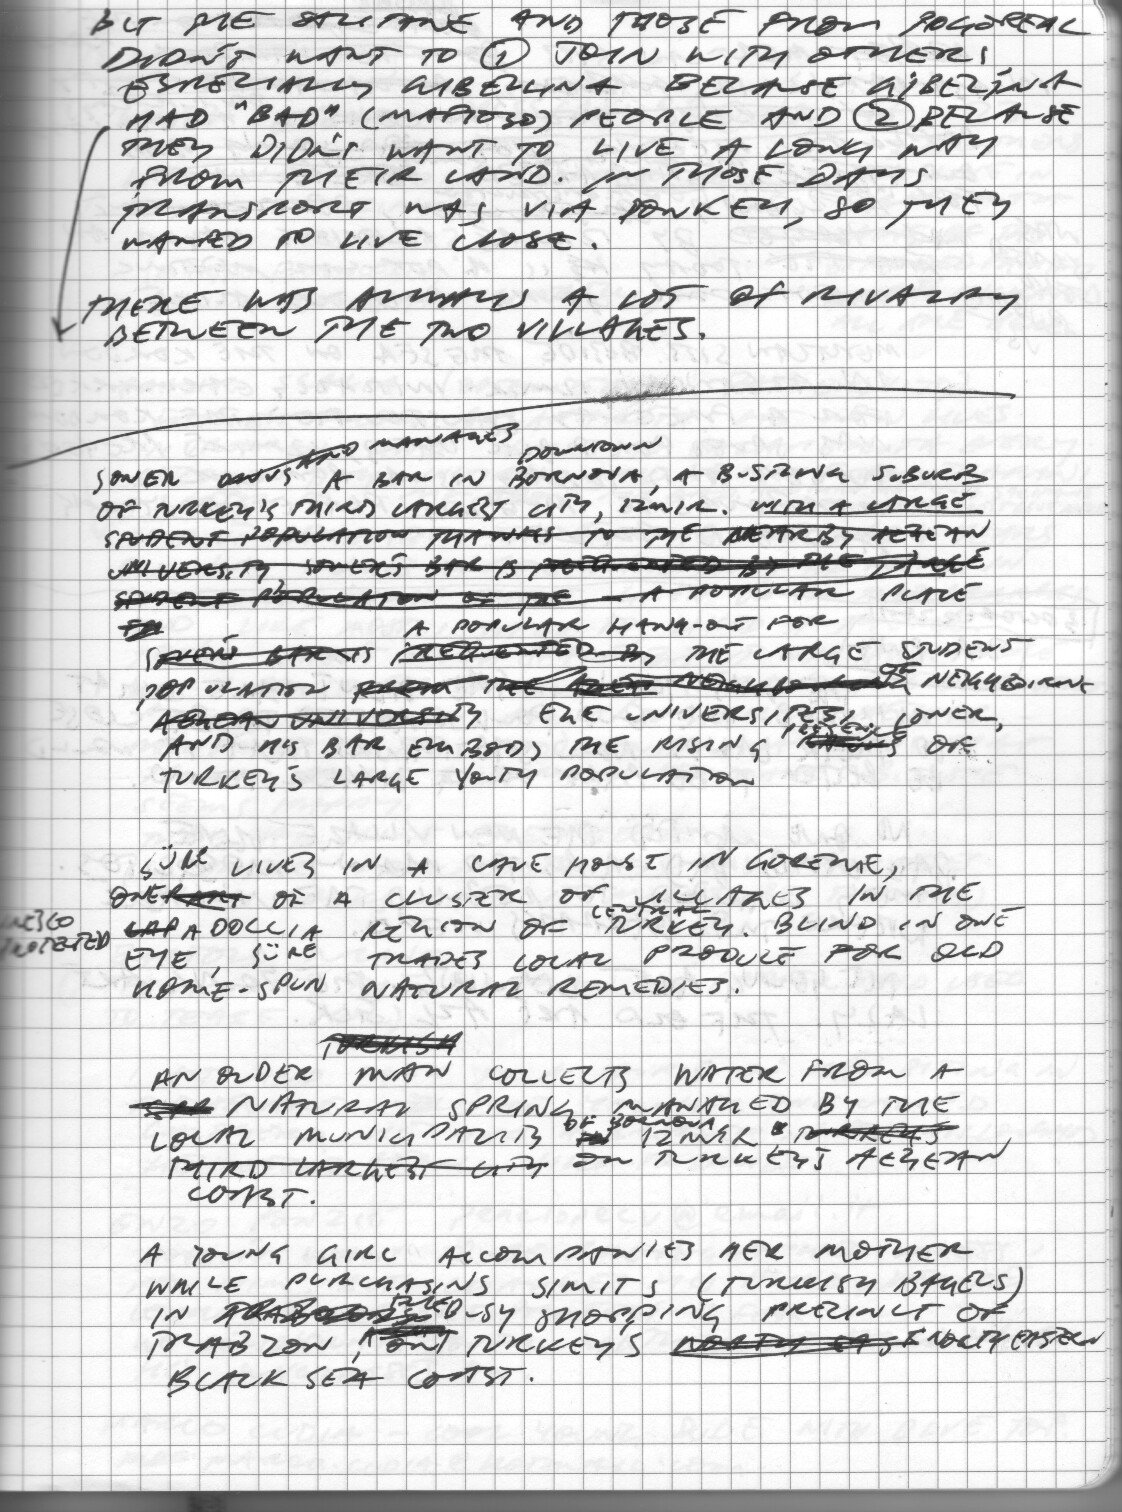 BUT THE SALITANE AND THOSE FROM POGGIOREAL
DIDN'T WANT TO ① JOIN WITH OTHERS
ESPECIALLY GIBELLINA BECAUSE GIBELLINA
HAD "BAD" (MAFIOSO) PEOPLE AND ② BECAUSE
THEY DIDN'T WANT TO LIVE A LONG WAY
FROM THEIR LAND. IN THOSE DAYS
TRANSPORT WAS VIA DONKEY, SO THEY
WANTED TO LIVE CLOSE.
THERE WAS ALWAYS A LOT OF RIVALRY
BETWEEN THE TWO VILLAGES.
AND MANAGES DOWNTOWN
SONER OWNS A BAR IN BORNOVA, A BUSTLING SUBURB
OF TURKEY'S THIRD LARGEST CITY, IZMIR. WITH A LARGE
STUDENT POPULATION THANKS TO THE NEARBY AEGEAN
UNIVERSITY SONER'S BAR IS FREQUENTED BY THE LARGE
STUDENT POPULATION OF THE – A POPULAR PLACE
A POPULAR HANG-OUT FOR
SONER'S BAR IS FREQUENTED BY THE LARGE STUDENT
POPULATION FROM THE NEIGHBOURING OF NEIGHBOURING
AEGEAN UNIVERSITY EGE UNIVERSITESI. SONER,
PRESENCE
AND HIS BAR EMBODY THE RISING OF
TURKEY'S LARGE YOUTH POPULATION
SÜRE LIVES IN A CAVE HOUSE IN GOREME,
ONE OF A CLUSTER OF VILLAGES IN THE
UNESCO PROTECTED CENTRAL
CAPADOCCIA REGION OF TURKEY. BLIND IN ONE
EYE, SÜRE TRADES LOCAL PRODUCE FOR OLD
HOME-SPUN NATURAL REMEDIES.
TURKISH
AN OLDER MAN COLLECTS WATER FROM A
NATURAL SPRING MANAGED BY THE
OF BORNOVA
LOCAL MUNICIPALITY IZMIR TURKEY'S
THIRD LARGEST CITY ON TURKEY'S AEGEAN
COAST.
A YOUNG GIRL ACCOMPANIES HER MOTHER
WHILE PURCHASING SIMITS (TURKISH BAGELS)
IN BUSY SHOPPING PRECINCT OF
TRABZON, ON TURKEY'S NORTH EAST NORTHEASTERN
BLACK SEA COAST.